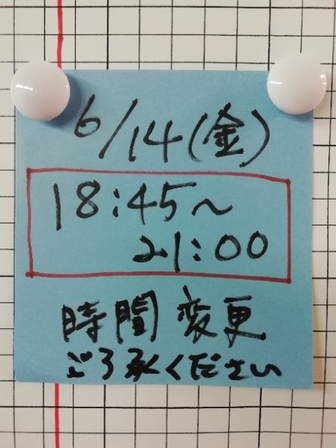 6/14(金)
18:45～
21:00
時間変更
ご了承ください